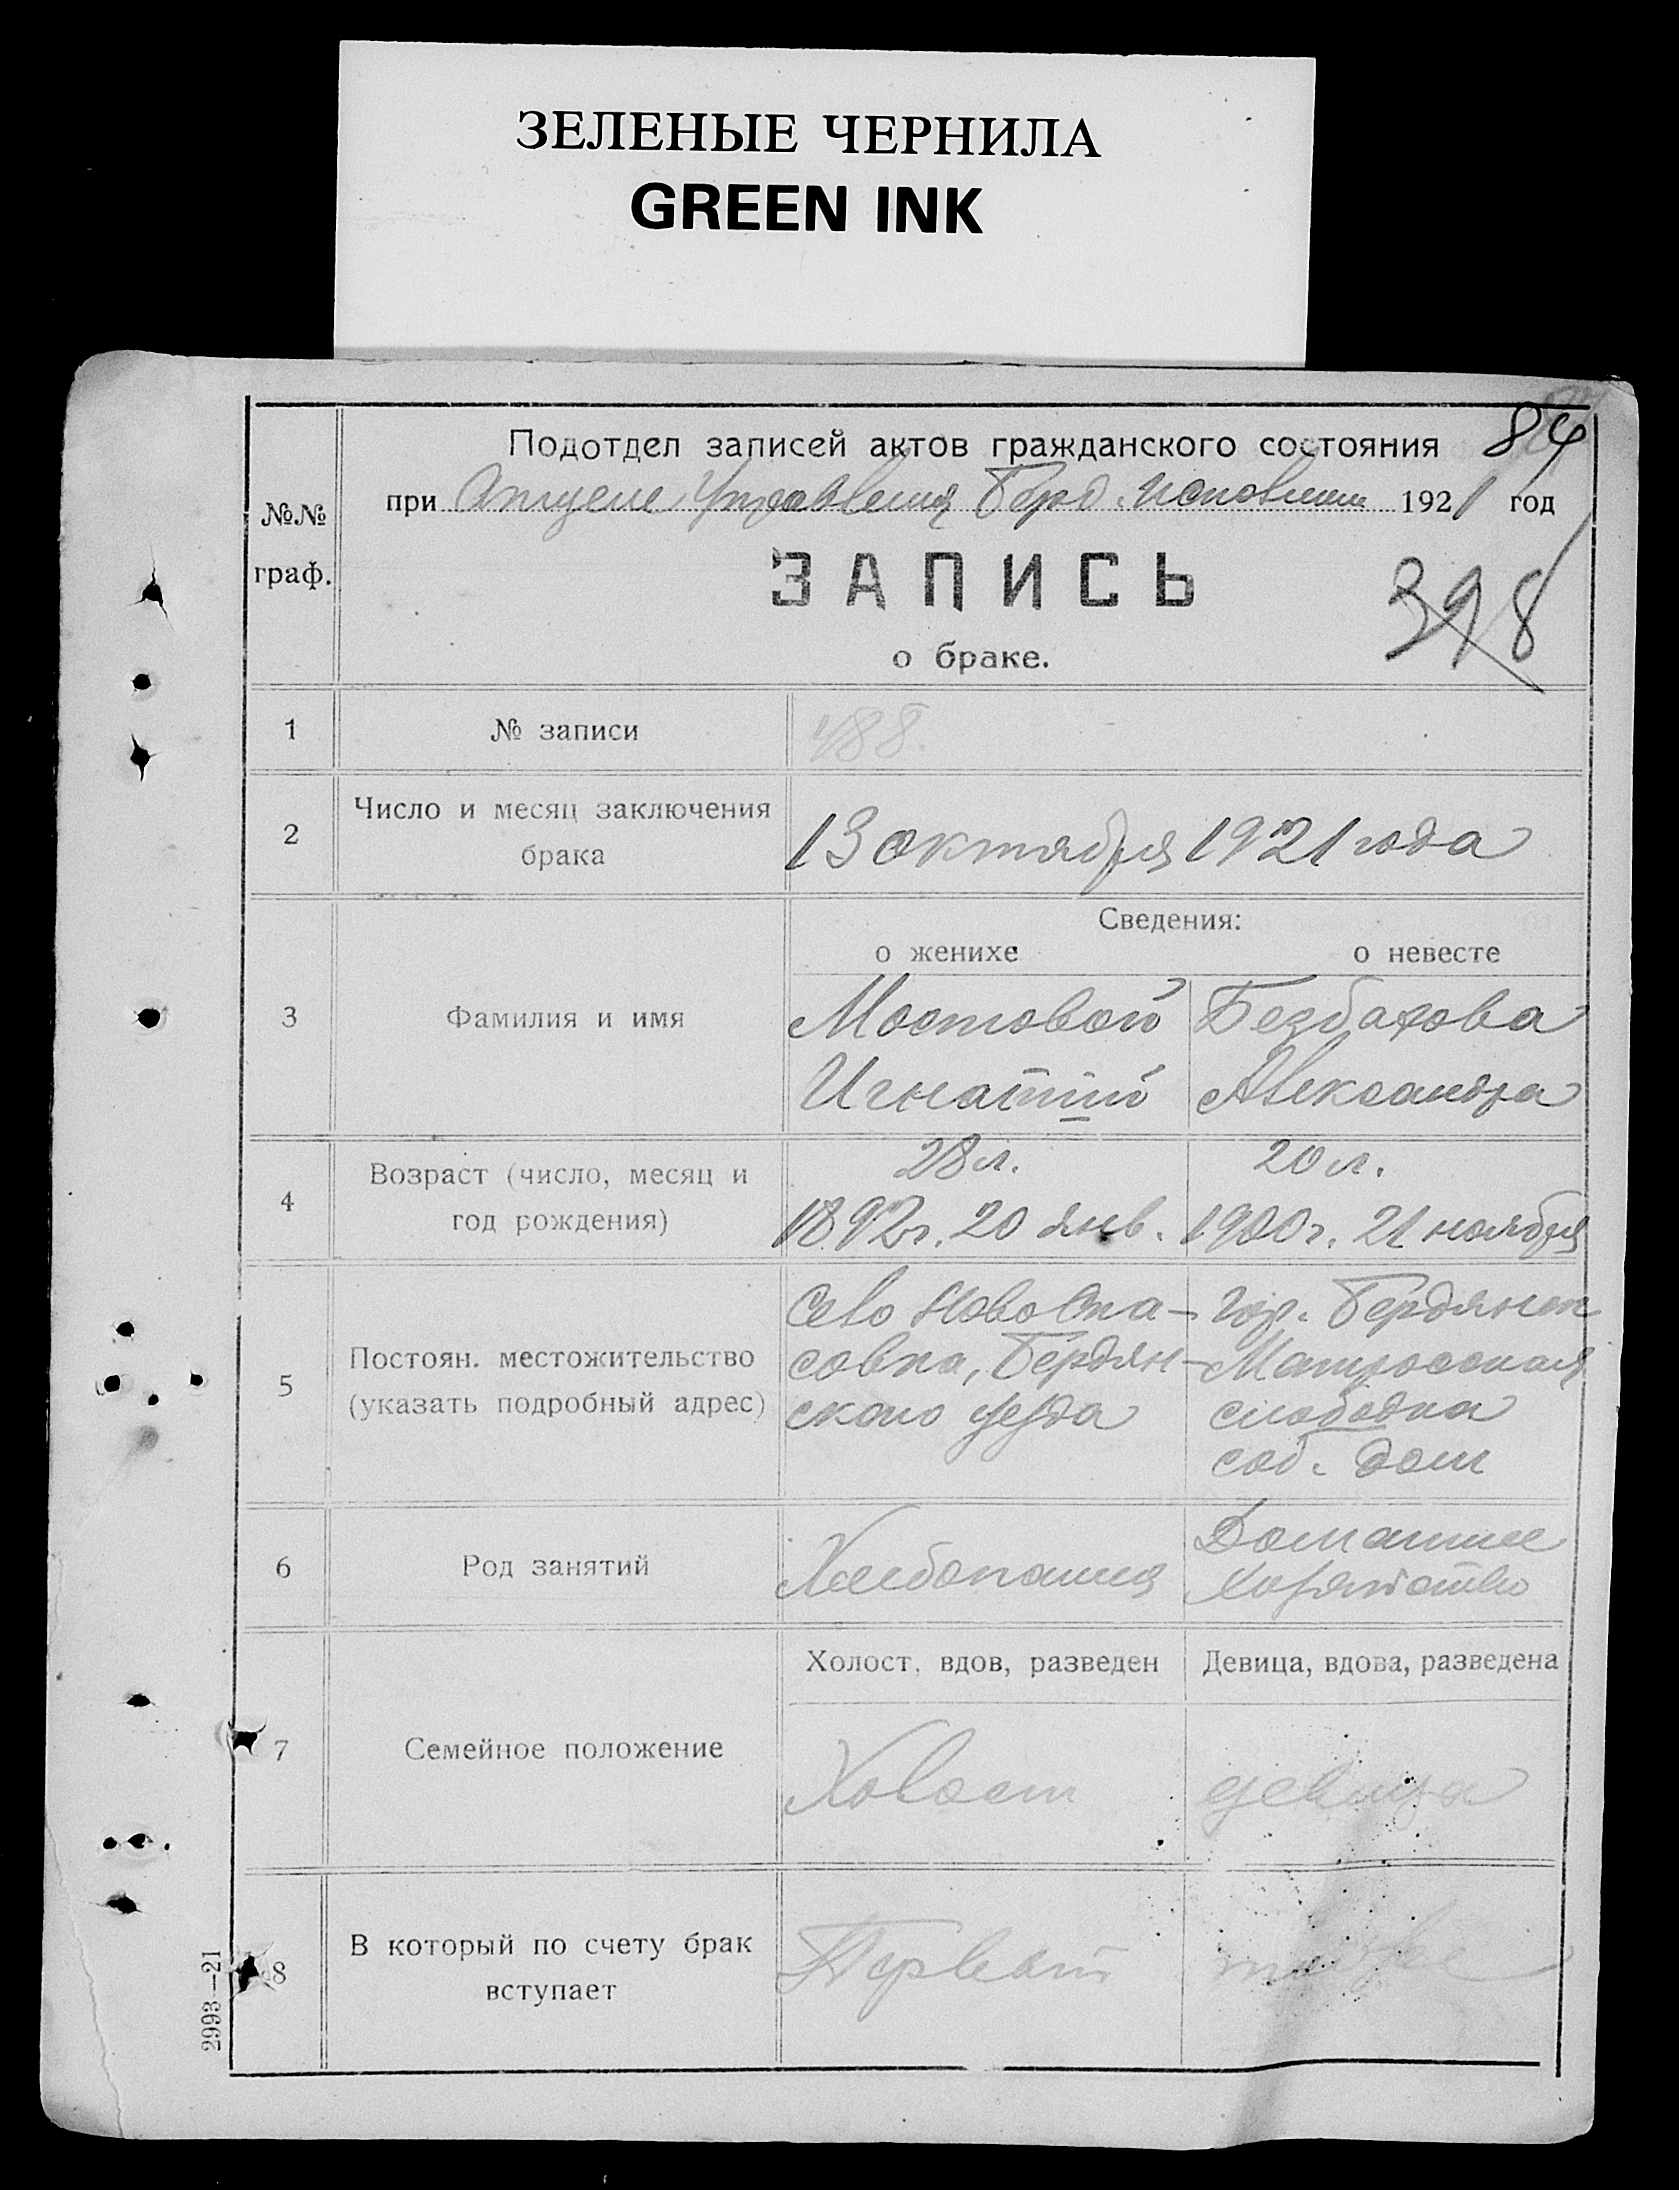 ЗЕЛЕНЫЕ ЧЕРНИЛА
GREEN INK
84
Подотдел записей актов гражданского состояния
при Отделе Управления Берд. Исполкома 1921 год
№№
граф.
ЗАПИСЬ
398
о браке.
1 № записи 488.
2 Число и месяц заключения
брака
13 октября 1921 года
Сведения:
о женихе о невесте
3 Фамилия и имя
Мостовой Безбахова
Игнатий Александра
4 Возраст (число, месяц и
год рождения)
28 л. 20 л.
1892 г. 20 янв. 1900 г. 21 ноября
5 Постоян. местожительство
(указать подробный адрес)
Село Новоспа- гор. Бердянск
совка, Бердян- Матросская
ского уезда слободка
соб. дом
6 Род занятий
Хлебопашец Домашнее
хозяйство
7 Семейное положение
Холост, вдов, разведен Девица, вдова, разведена
Холост девица
8 В который по счету брак
вступает
Первый тоже
2993—21